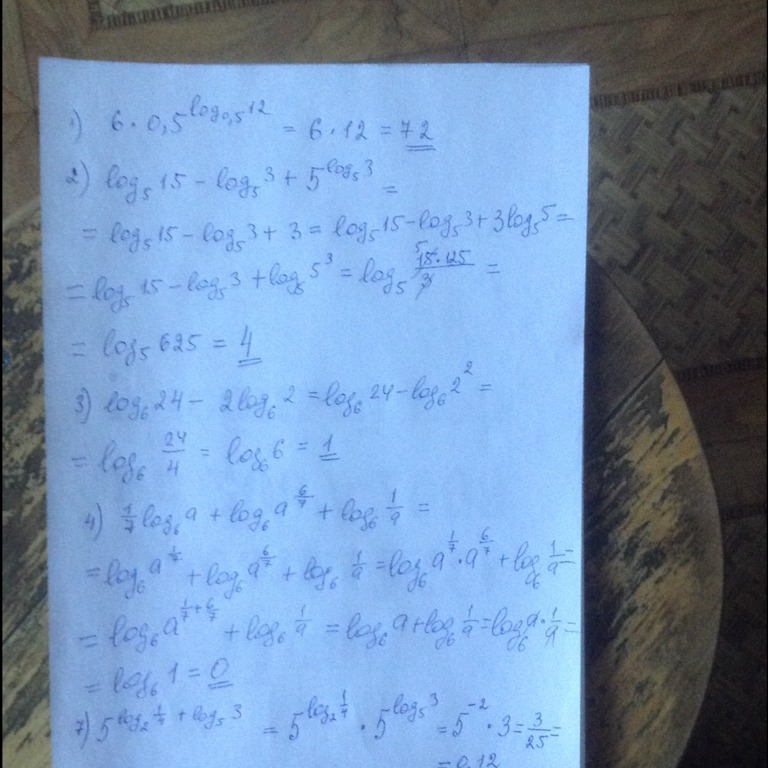 1) 6 · 0,5^(log₀,₅ 12) = 6 · 12 = 72
2) log₅ 15 − log₅ 3 + 5^(log₅ 3) =
= log₅ 15 − log₅ 3 + 3 = log₅ 15 − log₅ 3 + 3 log₅ 5 =
= log₅ 15 − log₅ 3 + log₅ 5³ = log₅ (15 · 125)/3 =
= log₅ 625 = 4
3) log₆ 24 − 2 log₆ 2 = log₆ 24 − log₆ 2² =
= log₆ 24/4 = log₆ 6 = 1
4) 1/7 log₆ a + log₆ a^(6/7) + log₆ 1/a =
= log₆ a^(1/7) + log₆ a^(6/7) + log₆ 1/a = log₆ a^(1/7) · a^(6/7) + log₆ 1/a =
= log₆ a^(1/7 + 6/7) + log₆ 1/a = log₆ a + log₆ 1/a = log₆ a · 1/a =
= log₆ 1 = 0
7) 5^(log₂ 1/4 + log₅ 3) = 5^(log₂ 1/4) · 5^(log₅ 3) = 5^(−2) · 3 = 3/25 =
= 0,12